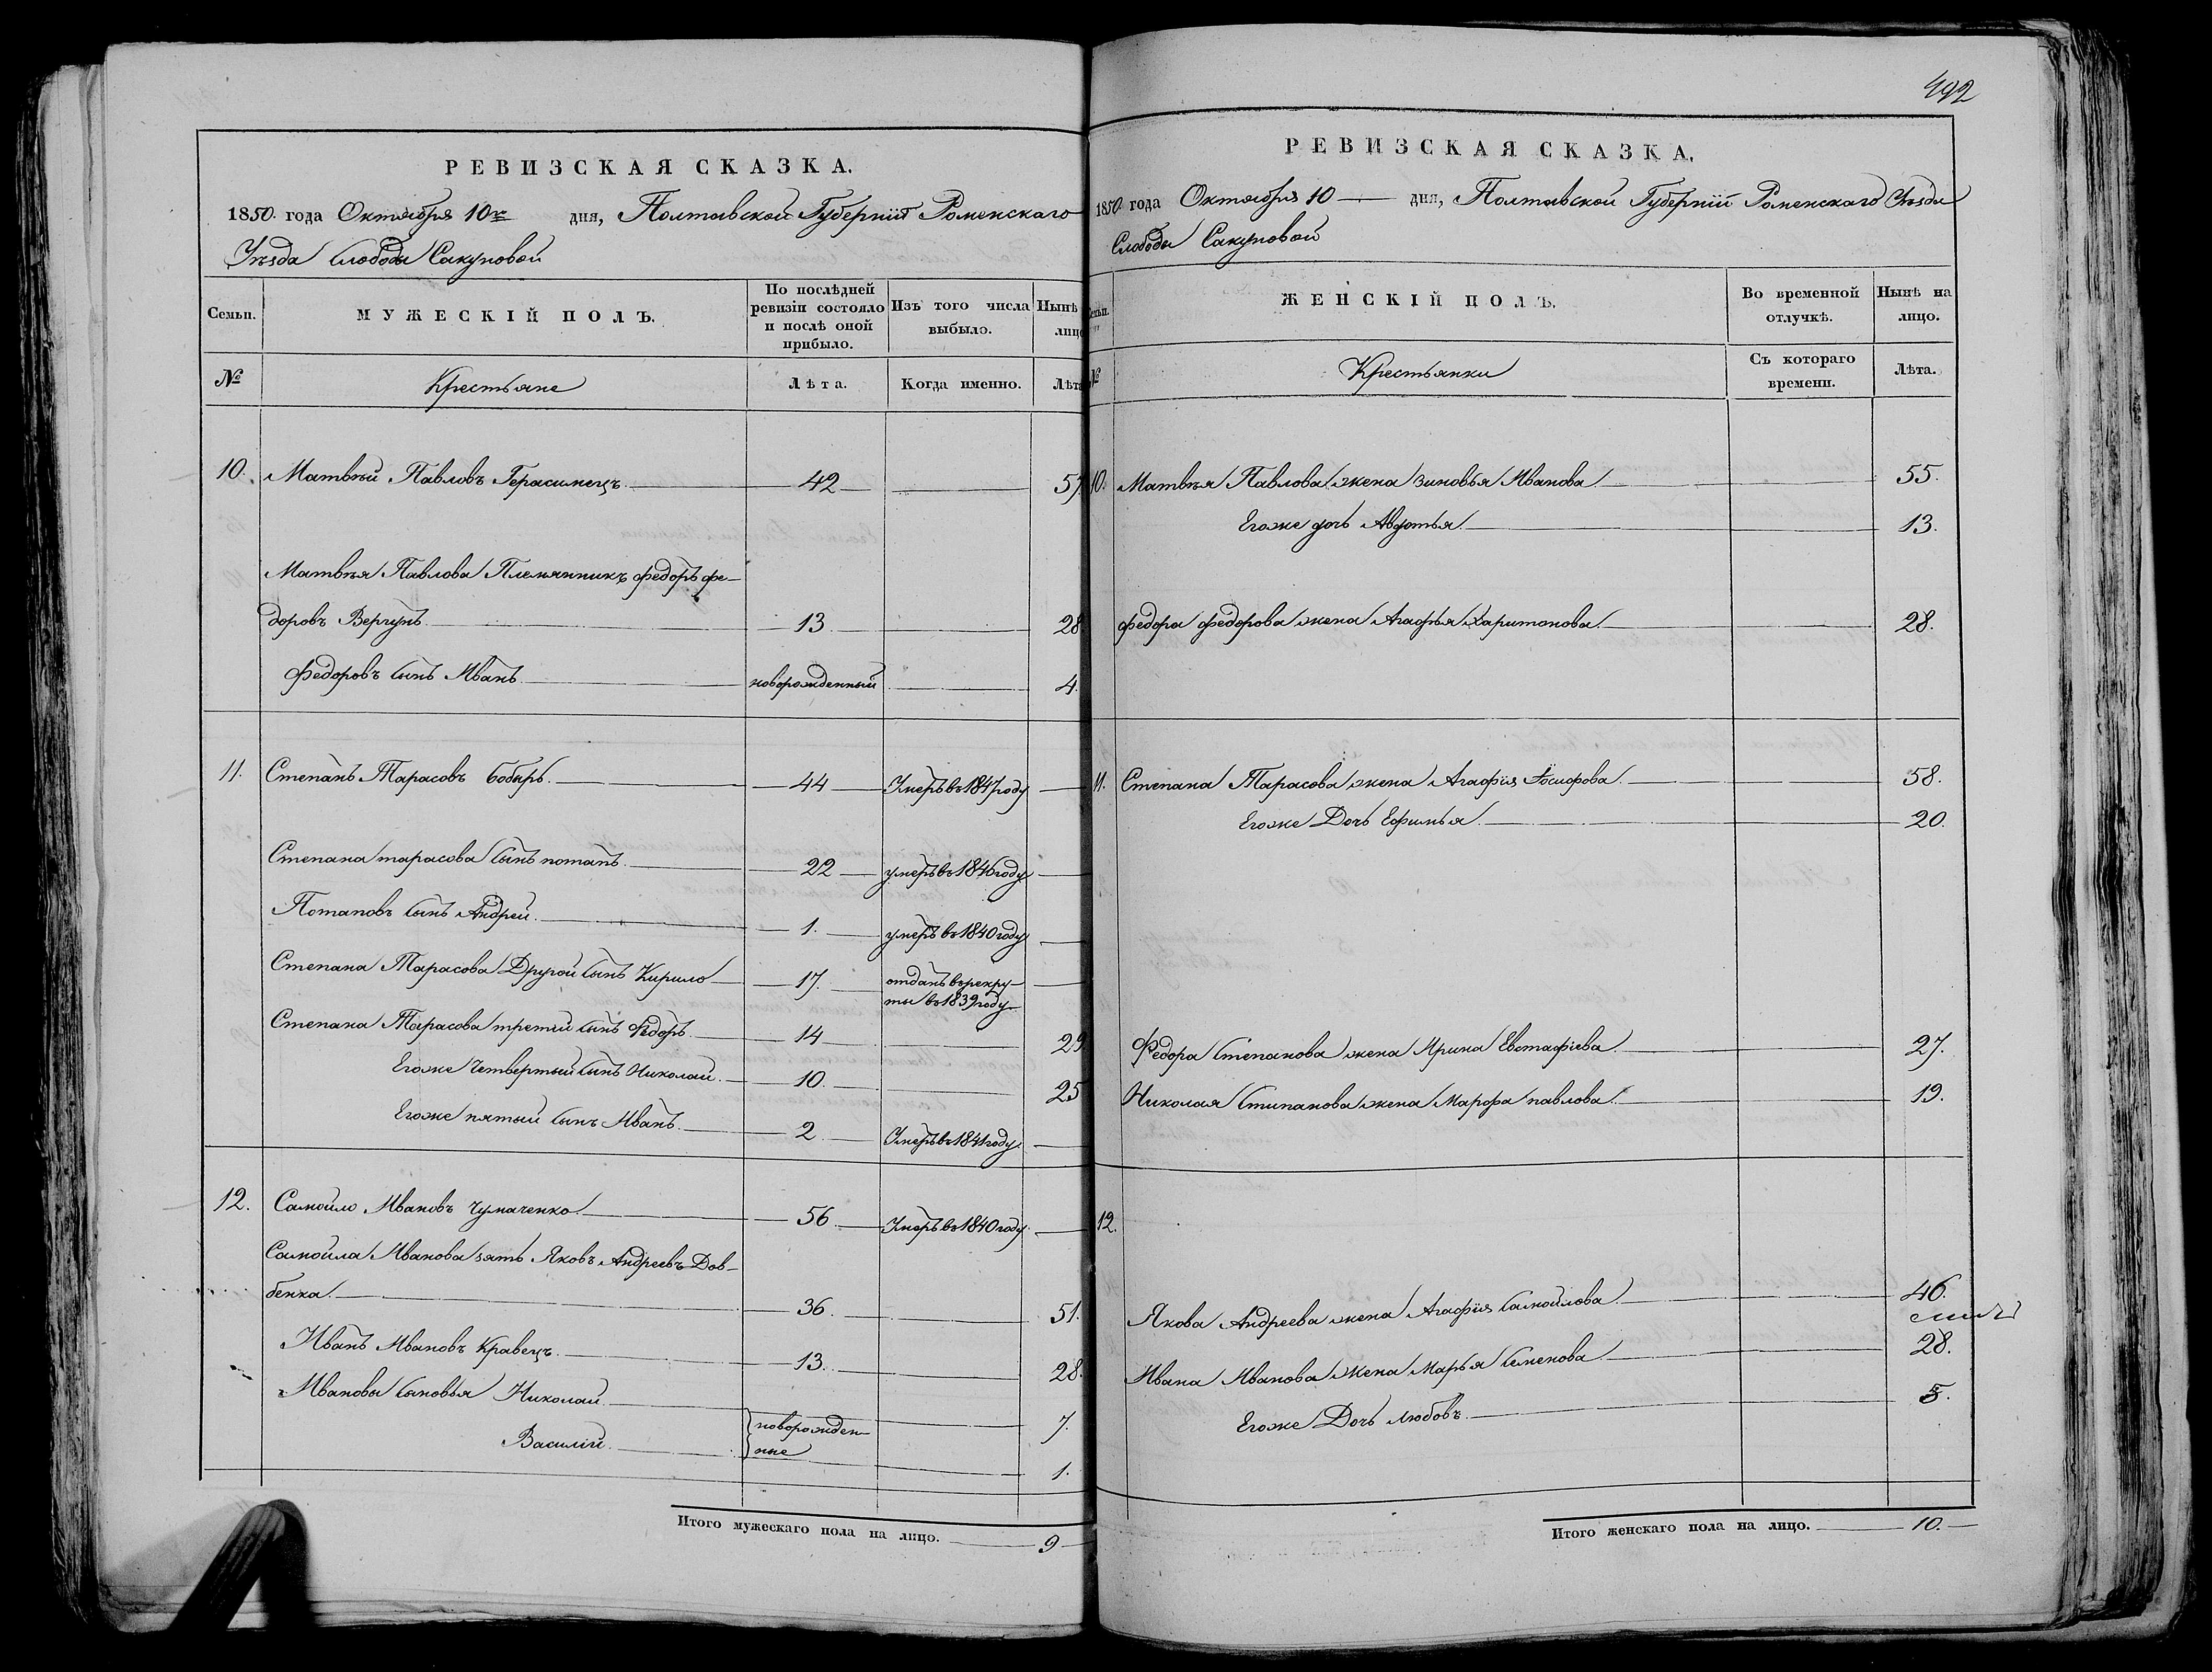 492
РЕВИЗСКАЯ СКАЗКА.
1850 года Октября 10го дня, Полтавской Губерніи Роменскаго
Уѣзда Слободы Сакуновой
Семьи. МУЖЕСКІЙ ПОЛЪ. По послѣдней ревизіи состояло и послѣ оной прибыло. Изъ того числа выбыло. Нынѣ лицо
№ Крестьяне Лѣта. Когда именно. Лѣта
10. Матвѣй Павловъ Герасимецъ 42 57.
Матвѣя Павлова Племянникъ федоръ фе-
доровъ Вергунъ 13 28
Федоровъ сынъ Иванъ новорожденный 4.
11. Степанъ Тарасовъ Бобырь 44 Умеръ въ 1847 году
Степана тарасова сынъ потапъ 22 умеръ въ 1846 году
Потаповъ сынъ Андрей 1. умеръ въ 1840 году
Степана Тарасова Другой сынъ Кирило 17. отданъ в рекру-
ты въ 1839 году
Степана Тарасова третій сынъ Федоръ 14 29.
Егоже Четвертый сынъ Николай 10. 25
Егоже пятый сынъ Иванъ 2 Умеръ въ 1841 году
12. Самойло Ивановъ Чумаченко 56 Умеръ въ 1840 году
Самойла Иванова зять Яковъ Андреевъ Дов-
бенка 36 51.
Иванъ Ивановъ Кравецъ 13. 28.
Ивановы сыновья Николай 7.
Василій новорожден-
ные 1.
Итого мужескаго пола на лицо. 9
РЕВИЗСКАЯ СКАЗКА.
1850 года Октября 10 дня, Полтавской Губерніи Роменскаго Уѣзда
Слободы Сакуновой
Семьи. ЖЕНСКІЙ ПОЛЪ. Во временной отлучкѣ. Нынѣ на лицо.
№ Крестьянки Съ котораго времени. Лѣта.
10. Матвѣя Павлова жена Зиновья Иванова 55.
Егоже дочь Авдотья 13.
федора федорова жена Агафья Харитонова 28.
11. Степана Тарасова жена Агафія Іосифова 58.
Егоже Дочь Ефимья 20.
Федора Степанова жена Ирина Евстафіева 27.
Николая Стипанова жена Марфа павлова 19.
12.
Якова Андреева жена Агафія Самойлова 46.
Ивана Иванова жена Марья Семенова 28.
Егоже Дочь Любовъ 5.
Итого женскаго пола на лицо. 10.